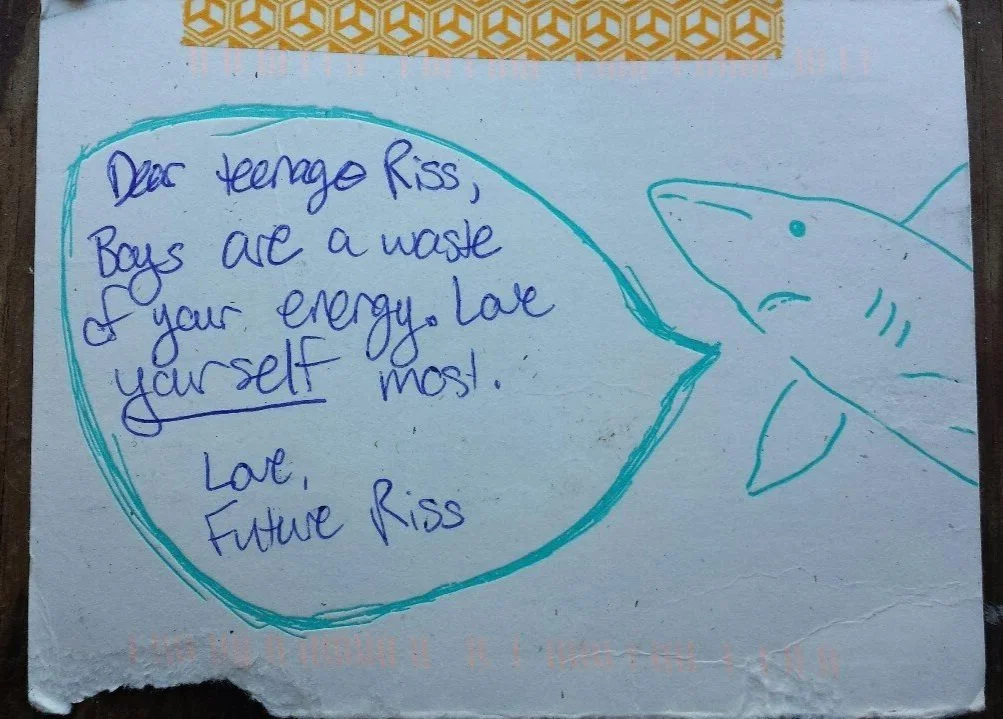 Dear teenage Riss,
Boys are a waste
of your energy. Love
yourself most.
Love,
Future Riss